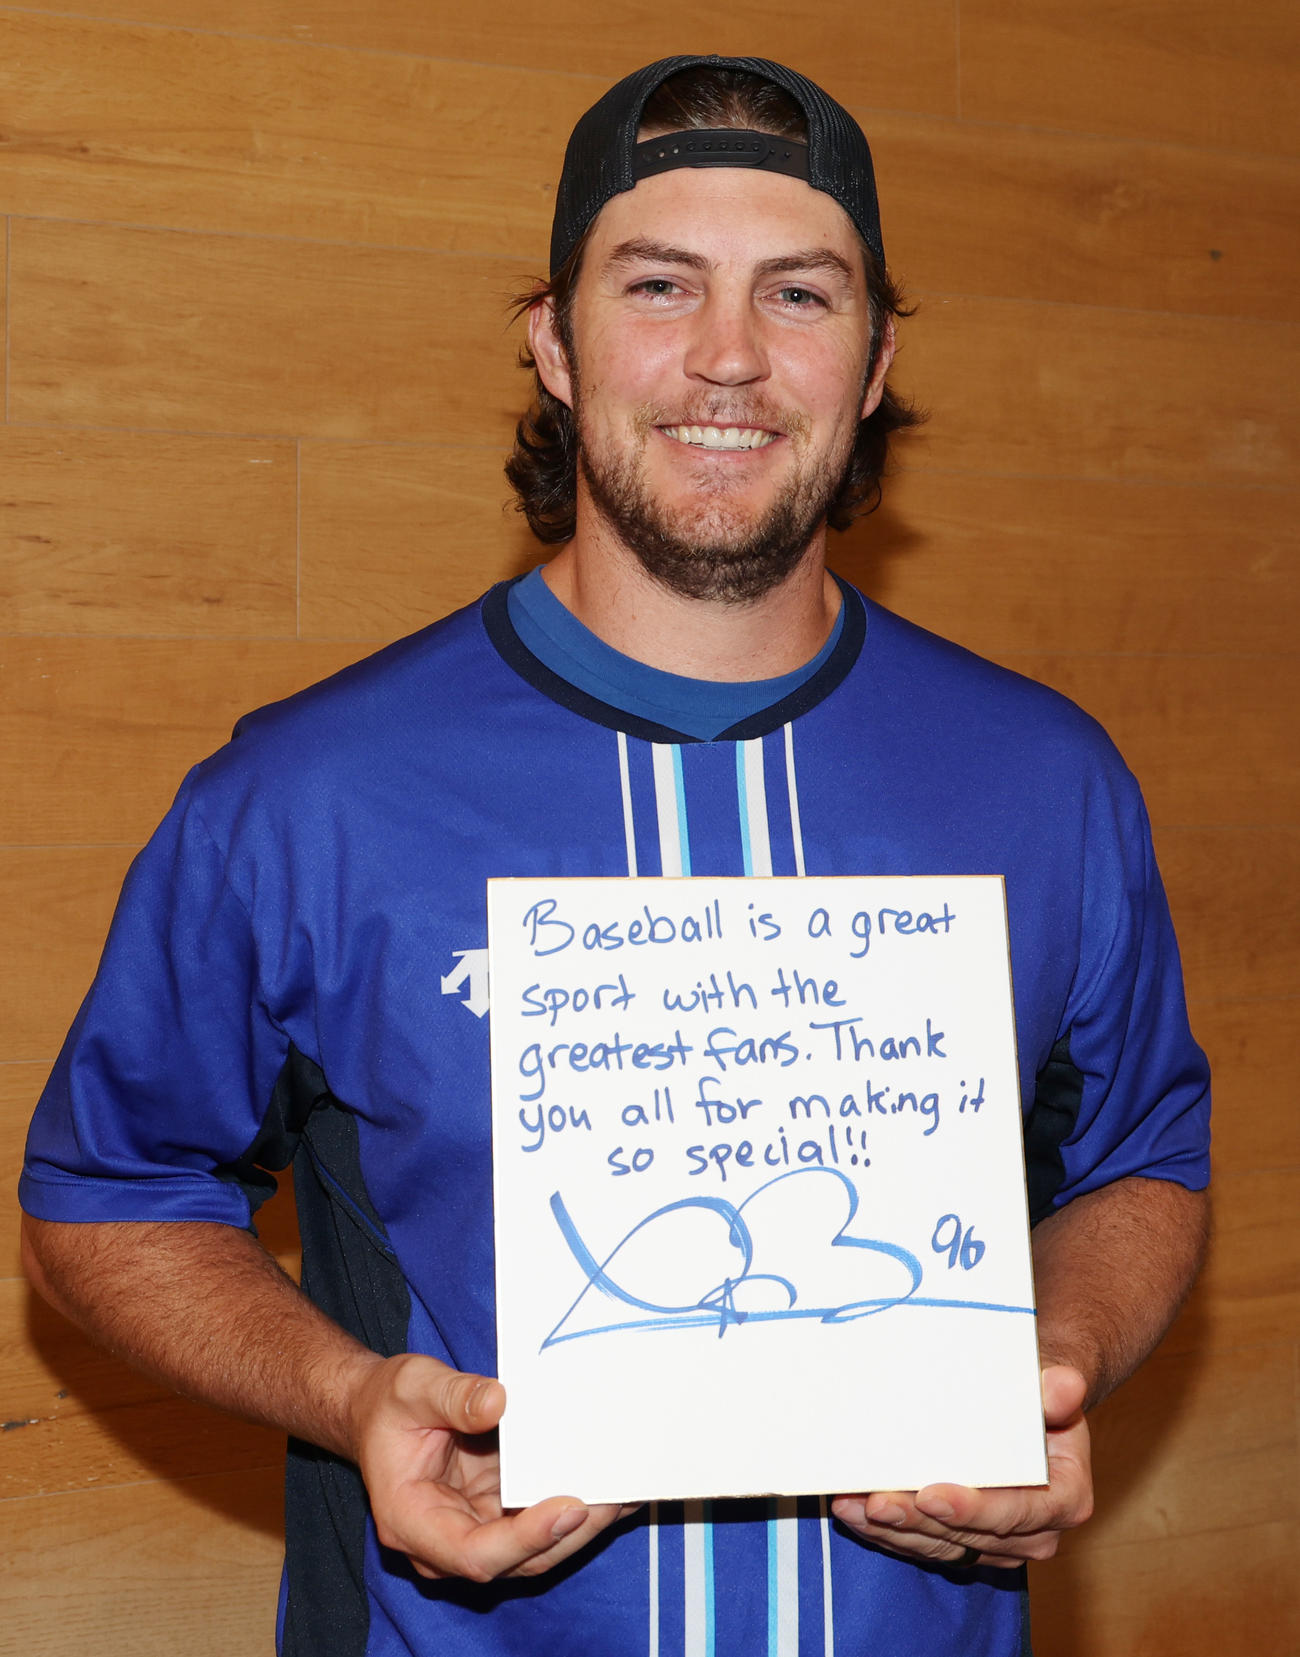 Baseball is a great
sport with the
greatest fans. Thank
you all for making it
so special!!
96